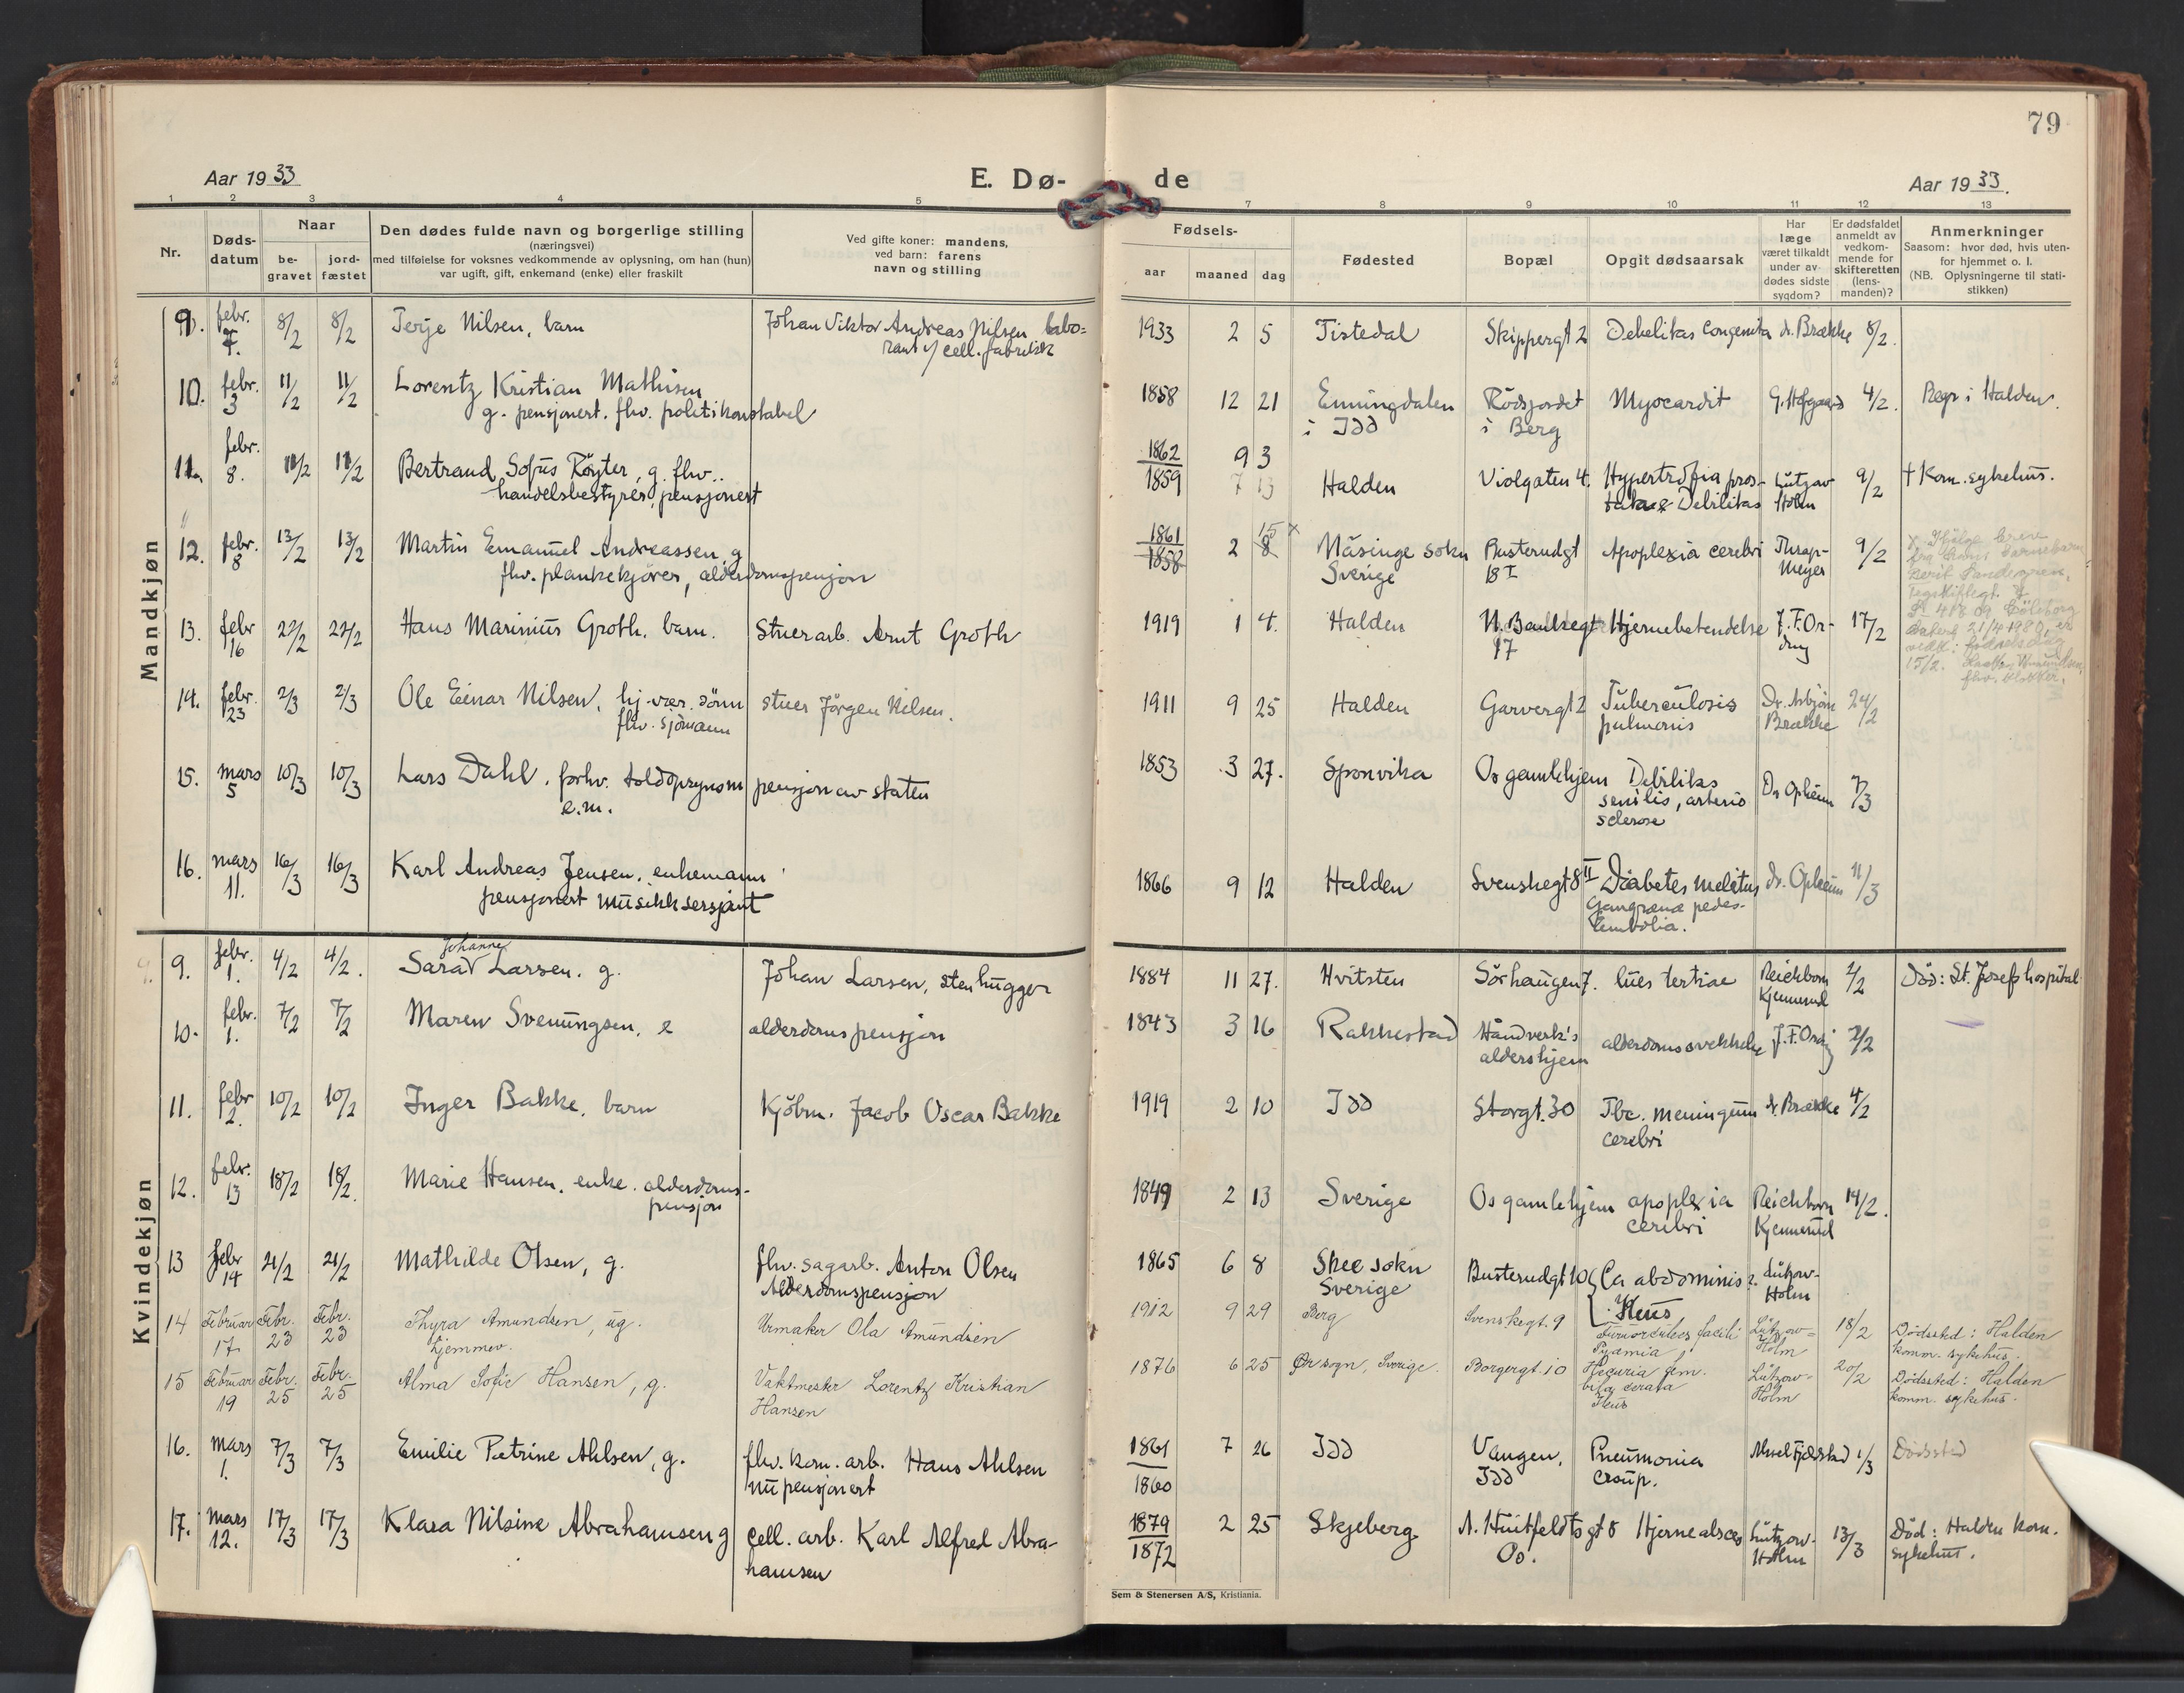 79
Aar 1933
E. Dø-
de
Aar 1933.
1 2 3 4 5 7 8 9 10 11 12 13
Nr.
Døds-
datum
Naar
be-
gravet
jord-
fæstet
Den dødes fulde navn og borgerlige stilling
(næringsvei)
med tilføielse for voksnes vedkommende av oplysning, om han (hun)
var ugift, gift, enkemand (enke) eller fraskilt
Ved gifte koner: mandens,
ved barn: farens
navn og stilling
Fødsels-
aar maaned dag
Fødested
Bopæl
Opgit dødsaarsak
Har
læge
været tilkaldt
under av-
dødes sidste
sygdom?
Er dødsfaldet
anmeldt av
vedkom-
mende for
skifteretten
(lens-
manden)?
Anmerkninger
Saasom: hvor død, hvis uten-
for hjemmet o. l.
(NB. Oplysningerne til stati-
stikken)
Mandkjøn
9. febr. 7. 8/2 8/2 Terje Nilsen, barn Johan Viktor Andreas Nilsen, labo=
rant v/ cell. fabrikk
1933 2 5 Tistedal Skippergt 2 Debelitas congenita dr. Brække 8/2.
10. febr. 3 11/2 11/2 Lorentz Kristian Mathisen
g. pensjonert. fhv. politikonstabel
1858 12 21 Enningdalen i Idd Rödsjordet i Berg Myocardit 4/2. Begr i Halden.
11. febr. 8. 11/2 11/2 Bertrand Sofus Röyter, g. fhv.
handelsbestyrer, pensjonert
1862 9 3
1859 7 13 Halden Violgaten 4. Hypertrofia pros-
tatae Debilitas Lützow Holm 9/2 † Kom. sykehus.
12. febr. 8 13/2 13/2 Martin Emanuel Andreassen, g
fhv. plankekjörer, alderdomspensjon
1861 15 x
1858 2 8 Näsinge sokn Sverige Busterudgt 18 I Apoplexia cerebri Thrap-Meyer 9/2
13. febr 16 22/2 22/2 Hans Marinius Groth, barn. Stuerarb. Arnt Groth
1919 1 4. Halden N. Bankegt 17 Hjernebetendelse J. F. Or-
ding 17/2
14. febr. 23 2/3 2/3 Ole Einar Nilsen, hj.-vær. sönn
fhv. sjömann stuer Jörgen Nilsen.
1911 9 25 Halden Garvergt 2 Tuberculosis
pulmonis Dr. Asbjörn Brække 24/2
15. mars 5 10/3 10/3 Lars Dahl, forhv. toldopsynsm
e.m. pensjon av staten
1853 3 27. Sponvika Os gamlehjem Debilitas
senilis, arterio
sclerose Dr Opheim 7/3
16. mars 11. 16/3 16/3 Karl Andreas Jensen, enkemann
pensjonert musikksersjant
1866 9 12 Halden Svenskegt 8 II Diabetes melitus
Gangræna pedes-
Embolia. dr. Opheim 11/3
Kvindekjøn
9. febr. 1. 4/2 4/2. Johanne
Sara Larsen. g. Johan Larsen, stenhugger
1884 11 27. Hvitsten Sörhaugen 7. lues tertiae Reichborn Kjennerud 2/2 Död: St. Josefs hospital
10. febr. 1. 7/2 7/2 Maren Svenningsen, e alderdomspensjon
1843 3 16 Rakkestad Håndverk's
aldershjem alderdomssvekkelse J. F. Ording 2/2
11. febr 2. 10/2 10/2 Inger Bakke, barn Kjöbm. Jacob Oscar Bakke
1919 2 10 Idd Storgt. 30 Tbc. meningum
cerebri dr. Brække 4/2
12. febr. 13 18/2 18/2. Marie Hansen. enke. alderdoms-
pensjon
1849 2 13 Sverige Os gamlehjem apoplexia
cerebri Reichborn
Kjennerud 14/2.
13 febr 14 21/2 21/2 Mathilde Olsen, g. fhv. sagarb. Anton Olsen
Alderdomspensjon
1865 6 8 Skee sokn
Sverige Busterudgt 10 Ca abdominis?
Ileus Lützow-
Holm
14 Februar 17. Febr. 23 Febr. 23 Thyra Amundsen, ug.
hjemmev. Urmaker Ola Amundsen
1912 9 29 Berg Svenskegt. 9 Furunculus faciei
Pyämia Lützow=
Holm 18/2 Dödssted: Halden
komm. sykehus.
15 Februar 19 Febr. 25 Febr. 25 Alma Sofie Hansen, g. Vaktmester Lorentz Kristian
Hansen
1876 6 25 Ør sogn, Sverige. Borgergt. 10
Ileus Lützow-
Holm 20/2 Dödssted: Halden
komm. sykehus.
16. mars 1. 7/3 7/3 Emilie Petrine Ahlsen, g. fhv. kom. arb. Hans Ahlsen
nu pensjonert
1861
1860 7 26 Idd Vaugen,
Idd Pneumonia
croup. Aksel Fjeldstad 1/3 Dödssted
17. mars 12. 17/3 17/3 Klara Nilsine Abrahamsen g cell. arb. Karl Alfred Abra-
hamsen
1879
1872 2 25 Skjeberg A. Huitfeldts gt 8
Os. Hjerneabsces Lützow-
Holm 13/3 Död: Halden kom.
sykehus.
Sem & Stenersen A/S, Kristiania.